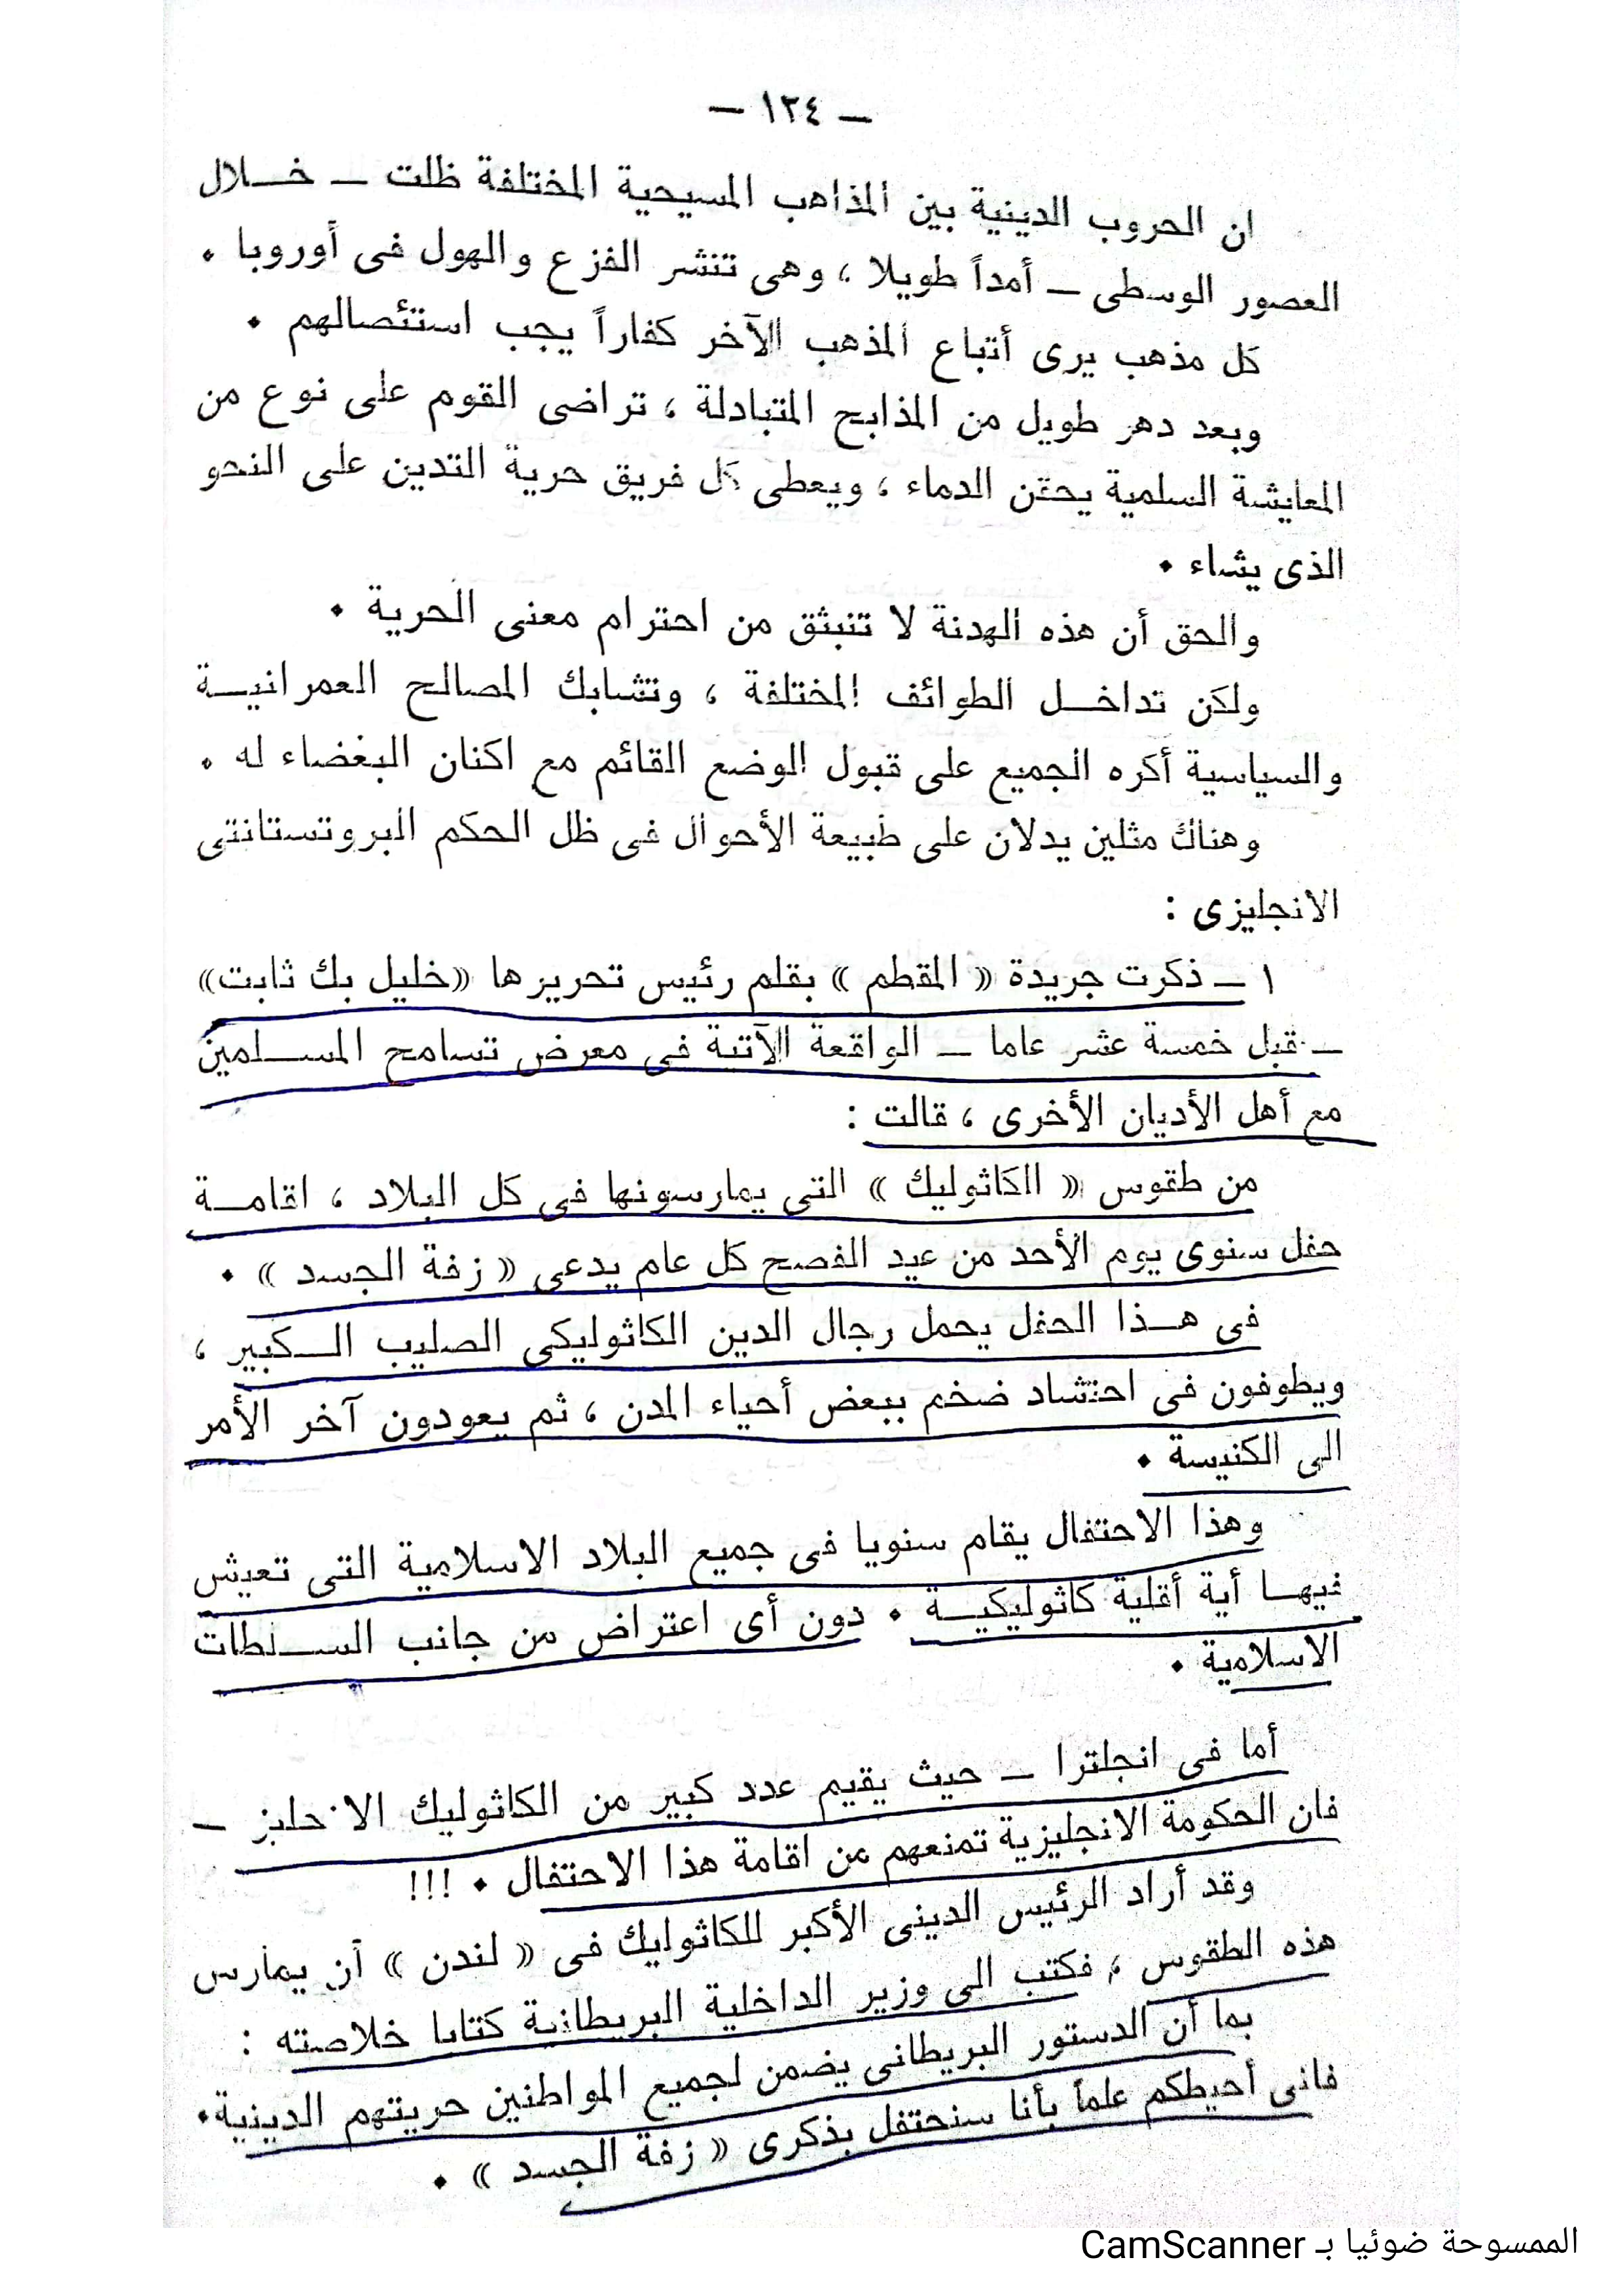 — ١٣٤ —
ان الحروب الدينية بين المذاهب المسيحية المختلفة ظلت — خــلال
العصور الوسطى — أمداً طويلا ، وهى تنشر الفزع والهول فى أوروبا .
كل مذهب يرى أتباع المذهب الآخر كفاراً يجب استئصالهم .
وبعد دهر طويل من المذابح المتبادلة ، تراضى القوم على نوع من
المعايشة السلمية يحقن الدماء ، ويعطى كل فريق حرية التدين على النحو
الذى يشاء .
والحق أن هذه الهدنة لا تنبثق من احترام معنى الحرية .
ولكن تداخــل الطوائف المختلفة ، وتشابك المصالح العمرانيــة
والسياسية أكره الجميع على قبول الوضع القائم مع اكنان البغضاء له .
وهناك مثلين يدلان على طبيعة الأحوال فى ظل الحكم البروتستانتى
الانجليزى :
١ — ذكرت جريدة « المقطم » بقلم رئيس تحريرها «خليل بك ثابت»
— قبل خمسة عشر عاما — الواقعة الآتية فى معرض تسامح المســلمين
مع أهل الأديان الأخرى ، قالت :
من طقوس « الكاثوليك » التى يمارسونها فى كل البلاد ، اقامــة
حفل سنوى يوم الأحد من عيد الفصح كل عام يدعى « زفة الجسد » .
فى هــذا الحفل يحمل رجال الدين الكاثوليكى الصليب الــكبير ،
ويطوفون فى احتشاد ضخم ببعض أحياء المدن ، ثم يعودون آخر الأمر
الى الكنيسة .
وهذا الاحتفال يقام سنويا فى جميع البلاد الاسلامية التى تعيش
فيهــا أية أقلية كاثوليكيــة . دون أى اعتراض من جانب الســلطات
الاسلامية .
أما فى انجلترا — حيث يقيم عدد كبير من الكاثوليك الانجليز —
فان الحكومة الانجليزية تمنعهم من اقامة هذا الاحتفال . !!!
وقد أراد الرئيس الدينى الأكبر للكاثوليك فى « لندن » أن يمارس
هذه الطقوس ، فكتب الى وزير الداخلية البريطانية كتابا خلاصته :
بما أن الدستور البريطانى يضمن لجميع المواطنين حريتهم الدينية.
فانى أحيطكم علماً بأنا سنحتفل بذكرى « زفة الجسد » .
الممسوحة ضوئيا بـ CamScanner